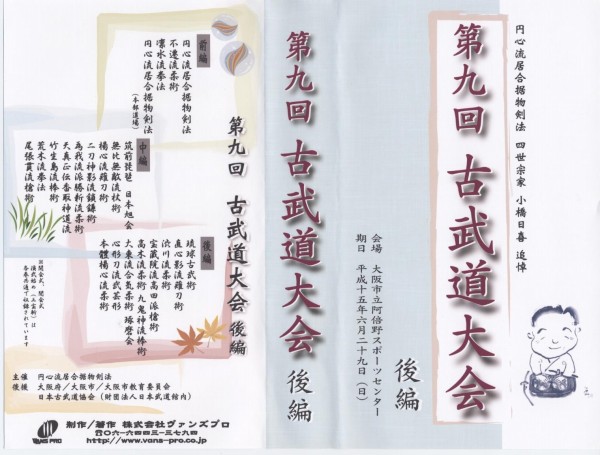 円心流居合据物剣法 四世宗家 小橋日喜 追悼
第九回 古武道大会
後編
会場 大阪市立阿倍野スポーツセンター
期日 平成十五年六月二十九日(日)
第九回 古武道大会 後編
第九回 古武道大会 後編
前編
円心流居合据物剣法
不遷流柔術
凛水流拳法
円心流居合据物剣法
(本部道場)
中編
筑前琵琶 日本旭会
無比無敵流杖術
楊心流薙刀術
二刀神影流鎖鎌術
為我流派勝新流柔術
天真正伝香取神道流
竹生島流棒術
荒木流拳法
尾張貫流槍術
後編
琉球古武術
直心影流薙刀術
渋川流柔術
宝蔵院流高田派槍術
高木流柔術 九鬼神流棒術
大東流合気柔術 琢磨会
心形刀流武芸形
本體楊心流柔術
※開会式、閉会式
演武始め(三宝斬)は
各巻共通で収録されています
主催 円心流居合据物剣法
後援 大阪府/大阪市/大阪市教育委員会
日本古武道協会(財団法人日本武道館内)
VANS PRO
制作/著作 株式会社ヴァンズプロ
☎06-6443-3794
http://www.vans-pro.co.jp